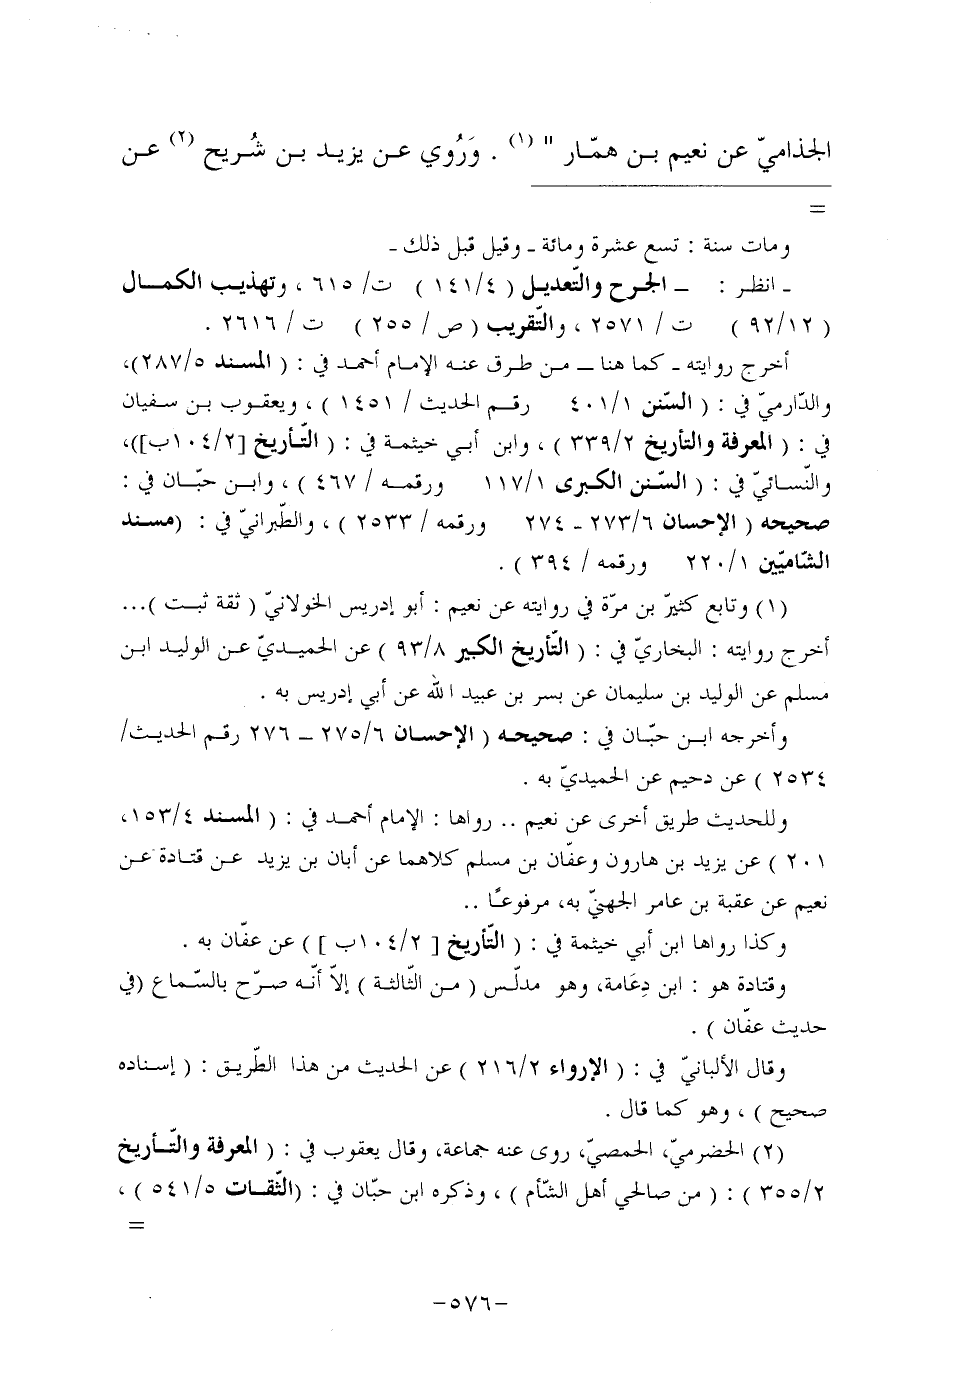 الجذاميّ عن نعيم بن همّار " (١) . ورُوي عن يزيد بن شُريح (٢) عن
=
ومات سنة : تسع عشرة ومائة ـ وقيل قبل ذلك ـ
ـ انظر : ـ الجرح والتّعديل ( ١٤١/٤ ) ت/ ٦١٥ ، وتهذيب الكمال
( ٩٢/١٢ ) ت / ٢٥٧١ ، والتّقريب ( ص / ٢٥٥ ) ت / ٢٦١٦ .
أخرج روايته ـ كما هنا ـ من طرق عنه الإمام أحمد في : ( المسند ٢٨٧/٥)،
والدّارميّ في : ( السّنن ٤٠١/١ رقم الحديث / ١٤٥١ ) ، ويعقوب بن سفيان
في : ( المعرفة والتأريخ ٣٣٩/٢ ) ، وابن أبي خيثمة في : ( التّأريخ [١٠٤/٢ب])،
والنّسائيّ في : ( السّنن الكبرى ١١٧/١ ورقمه / ٤٦٧ ) ، وابن حبّان في :
صحيحه ( الإحسان ٢٧٣/٦ ـ ٢٧٤ ورقمه / ٢٥٣٣ ) ، والطّبرانيّ في : (مسند
الشّاميّين ٢٢٠/١ ورقمه / ٣٩٤ ) .
(١) وتابع كثيرّ بن مرّة في روايته عن نعيم : أبو إدريس الخولانيّ ( ثقة ثبت )...
أخرج روايته : البخاريّ في : ( التّأريخ الكبير ٩٣/٨ ) عن الحميديّ عن الوليد ابن
مسلم عن الوليد بن سليمان عن بسر بن عبيد الله عن أبي إدريس به .
وأخرجه ابن حبّان في : صحيحه ( الإحسان ٢٧٥/٦ ـ ٢٧٦ رقم الحديث/
٢٥٣٤ ) عن دحيم عن الحميديّ به .
وللحديث طريق أخرى عن نعيم .. رواها : الإمام أحمد في : ( المسند ١٥٣/٤،
٢٠١ ) عن يزيد بن هارون وعفّان بن مسلم كلاهما عن أبان بن يزيد عن قتادة عن
نعيم عن عقبة بن عامر الجهنيّ به، مرفوعًا ..
وكذا رواها ابن أبي خيثمة في : ( التّأريخ [ ١٠٤/٢ب ] ) عن عفّان به .
وقتادة هو : ابن دِعَامة، وهو مدلّس ( من الثّالثة ) إلاّ أنّه صرّح بالسّماع (في
حديث عفّان ) .
وقال الألبانيّ في : ( الإرواء ٢١٦/٢ ) عن الحديث من هذا الطّريق : ( إسناده
صحيح ) ، وهو كما قال .
(٢) الحضرميّ، الحمصيّ، روى عنه جماعة، وقال يعقوب في : ( المعرفة والتّأريخ
٣٥٥/٢ ) : ( من صالحي أهل الشّأم ) ، وذكره ابن حبّان في : (الثّقات ٥٤١/٥ ) ،
=
-٥٧٦-